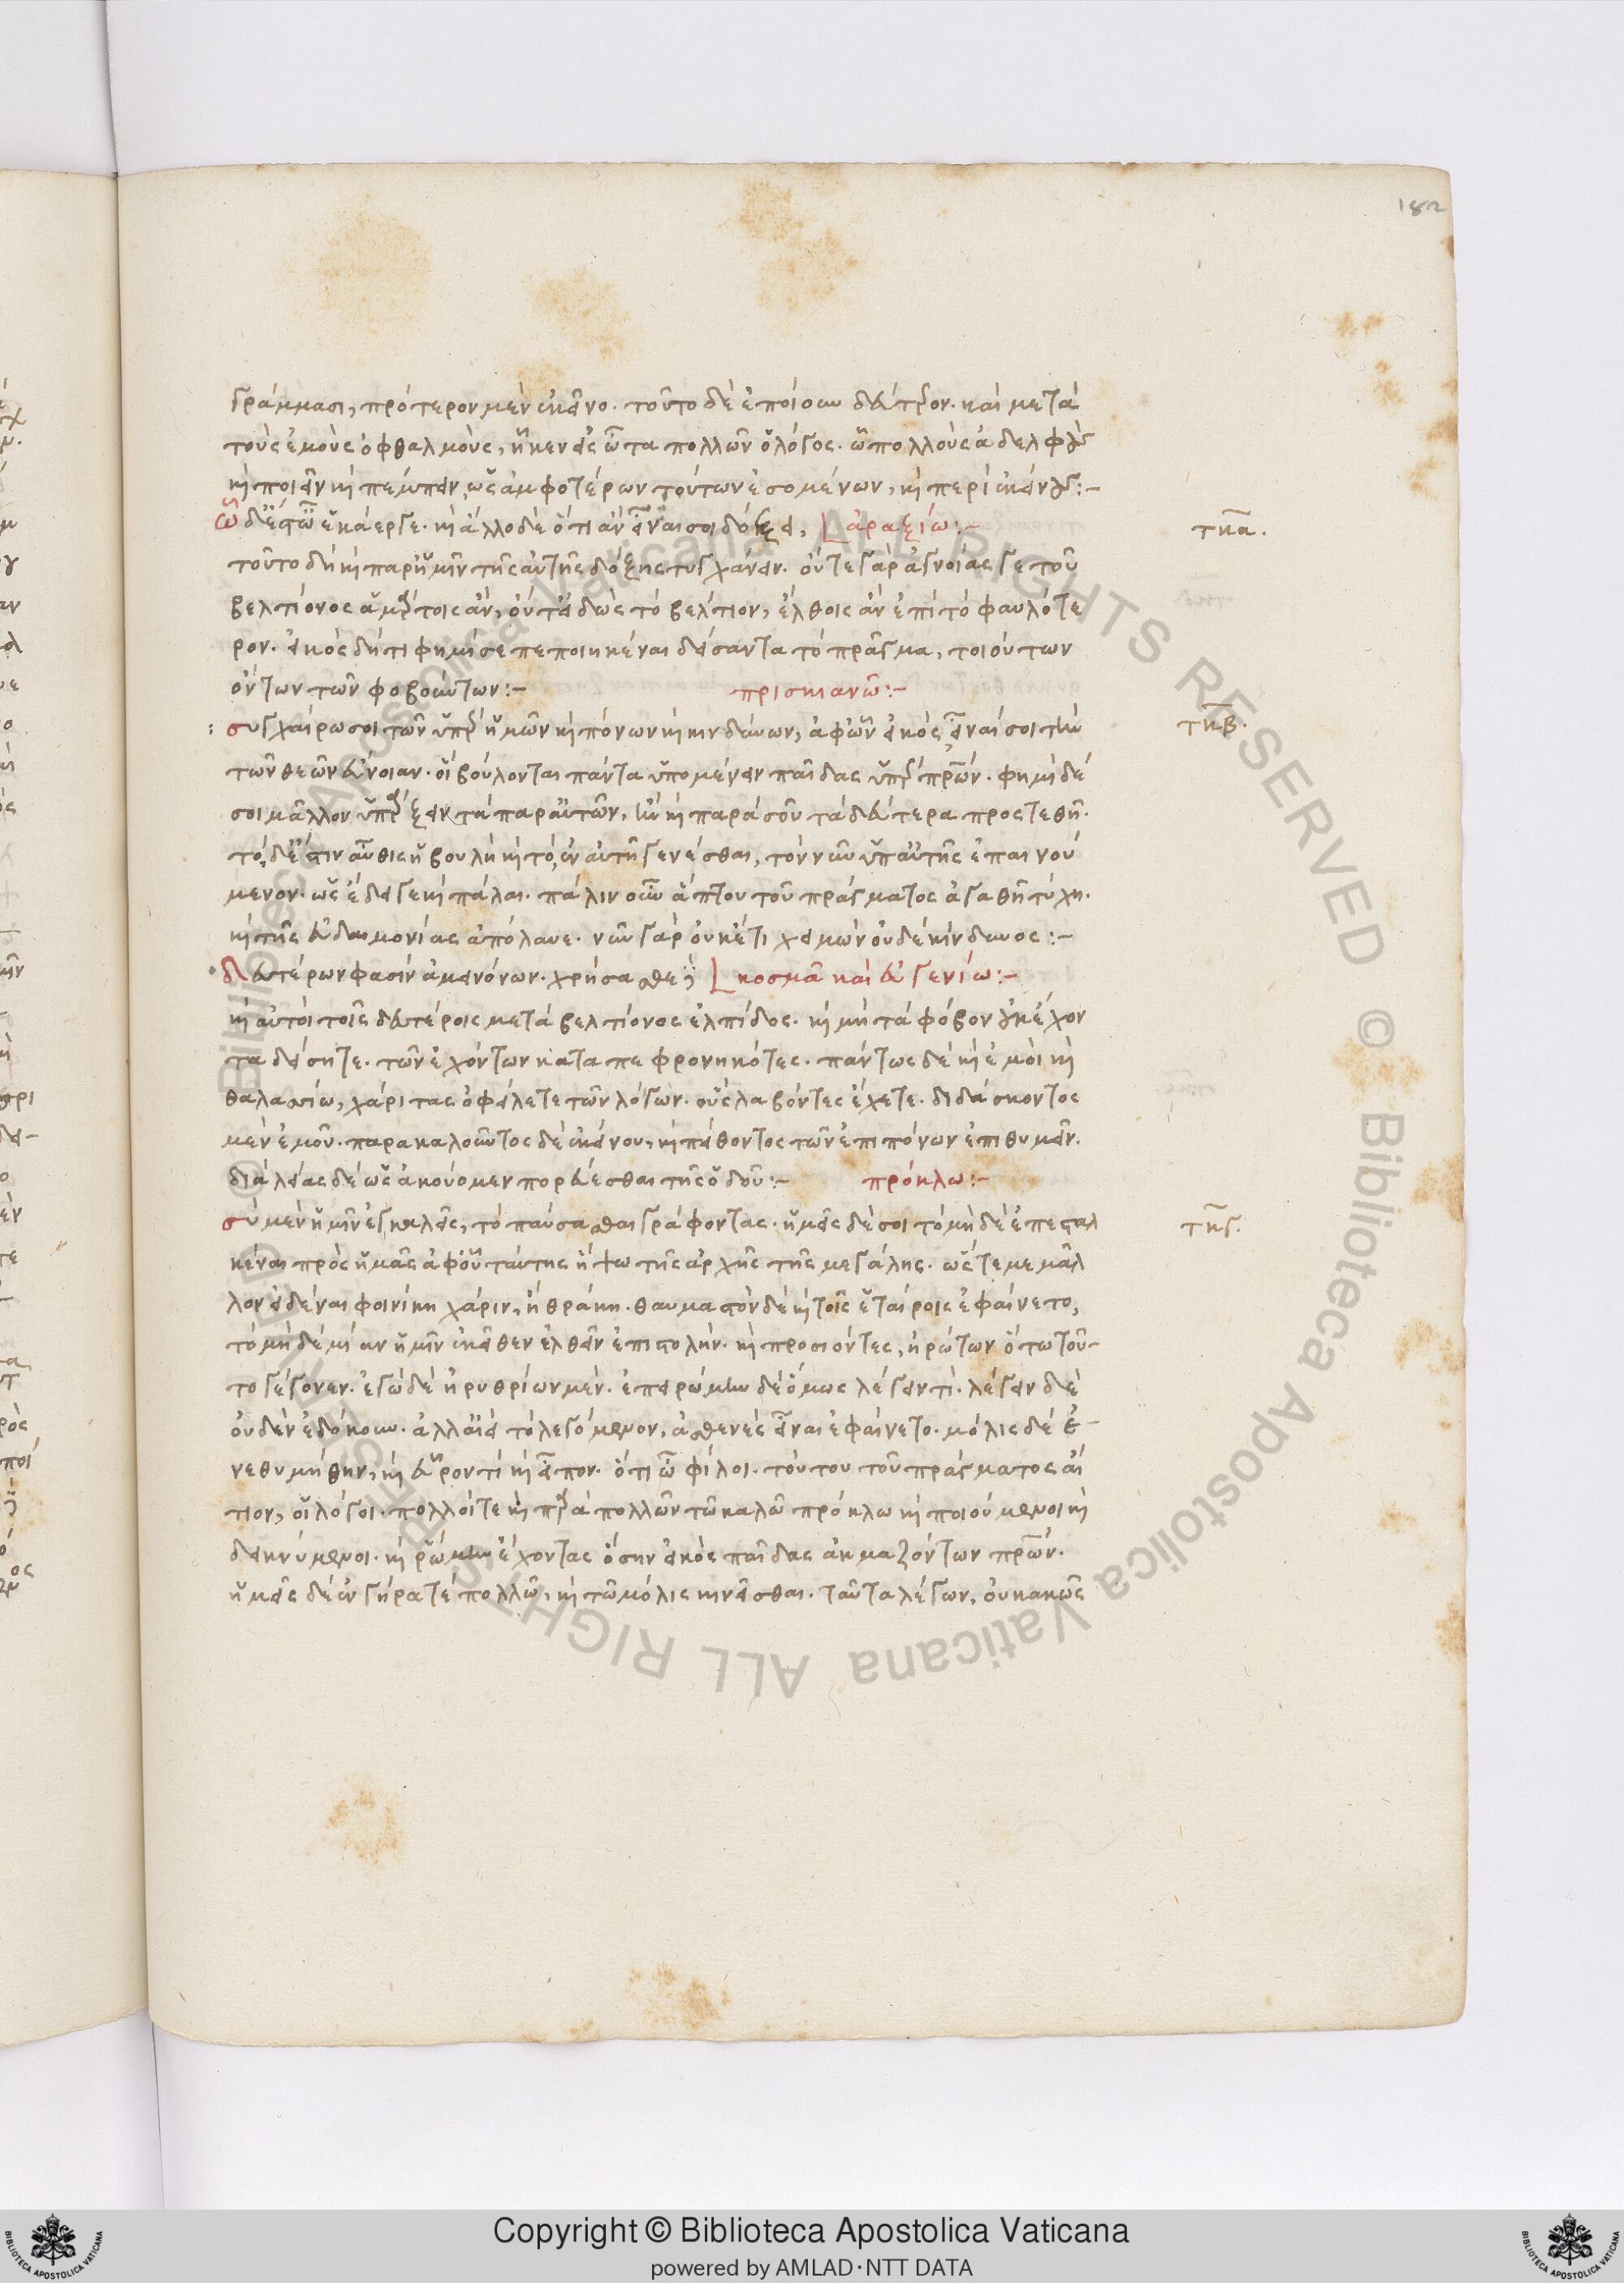 182
γράμμασι, πρότερον μὲν ἐκεῖνο. τοῦτο δὲ ἐποίουν δεύτερον. καὶ μετὰ
τοὺς ἐμοὺς ὀφθαλμοὺς, ἧκεν εἰς ὦτα πολλῶν ὁ λόγος. ὦ πολλοὺς ἀδελφοὺς
κὶ ποιεῖν κὶ πέμπειν, ὡς ἀμφοτέρων τούτων ἐσομένων, κὶ περὶ ἐκείνους:-
ὦ δ' ἔστω ἑκάεργε. κὶ ἄλλο δὲ ὅτι ἂν εἶναι σοι δόξει, ἀραξίω:- τκα.
τοῦτο δὴ κὶ παρ' ἡμῖν τῆς αὐτῆς δόξης τυγχάνειν. οὔτε γὰρ ἀγνοίας γε τοῦ
βελτίονος ἁμάρτοις ἂν, οὔτ' εἰδὼς τὸ βέλτιον, ἔλθοις ἂν ἐπὶ τὸ φαυλότε
ρον. εἰκὸς δή τι φημί σε πεποιηκέναι δείσαντα τὸ πρᾶγμα, τοιούτων
ὄντων τῶν φοβούντων:- πρισκιανῶ:-
συγχαίρω σοι τῶν ὑπὲρ ἡμῶν κὶ πόνων κὶ κινδύνων, ἀφ' ὧν εἰκὸς εἶναί σοι τὴν τκβ.
τῶν θεῶν εὔνοιαν. οἳ βούλονται πάντα ὑπομένειν παῖδας ὑπὲρ πρων. φημὶ δέ
σοι μᾶλλον ὑπάρξειν τὰ παρ' αὐτῶν, ἢν κὶ παρὰ σοῦ τὰ δεύτερα προστεθῆ.
τὸ, δ' ἔστιν αὖθις ἡ βουλὴ κὶ τὸ, ἐν αὐτῆ γενέσθαι, τὸν νῦν ὑπ' αὐτῆς ἐπαινού
μενον. ὡς ἔδει γε κὶ πάλαι. πάλιν οὖν ἅπτου τοῦ πράγματος ἀγαθῆ τύχη.
κὶ τῆς εὐδαιμονίας ἀπόλαυε. νῦν γὰρ οὐκέτι χειμὼν οὐδὲ κίνδυνος:-
δευτέρων φασὶν ἀμεινόνων. χρήσασθε κοσμᾶ καὶ εὐγενίω:-
κὶ αὐτοὶ τοῖς δευτέροις μετὰ βελτίονος ἐλπίδος. κὶ μὴ τὰ φόβον οὐκ ἔχον
τα δείσητε. τῶν ἐχόντων καταπεφρονηκότες. πάντως δὲ κὶ ἐμοὶ κὶ
θαλασσίω, χάριτας ὀφείλετε τῶν λόγων. οὓς λαβόντες ἔχετε. διδάσκοντος
μὲν ἐμοῦ. παρακαλοῦντος δὲ ἐκείνου, κὶ πείθοντος τῶν ἐπιπόνων ἐπιθυμεῖν.
διὰ λείας δὲ ὡς ἀκούομεν πορεύεσθαι τῆς ὁδοῦ:- πρόκλω:-
σὺ μὲν ἡμῖν ἐγκαλεῖς, τὸ παύσασθαι γράφοντας. ἡμεῖς δὲ σοι τὸ μὴδὲ ἐπεσταλ τκγ.
κέναι πρὸς ἡμᾶς ἀφ' οὗ ταύτης ἥψω τῆς ἀρχῆς τῆς μεγάλης. ὥστε με μᾶλ
λον εἰδέναι φοινίκη χάριν, ἢ θράκη. θαυμαστὸν δὲ κὶ τοῖς ἑταίροις ἐφαίνετο,
τὸ μηδὲ μίαν ἡμῖν ἐκεῖθεν ἐλθεῖν ἐπιστολήν. κὶ προσιόντες, ἠρώτων ὅτω τοῦ-
το γέγονεν. ἐγὼ δὲ ἠρυθρίων μὲν. ἐπειρώμην δὲ ὅμως λέγειν τί. λέγειν δὲ
οὐδὲν ἐδόκουν. ἀλλ' ἀεὶ τὸ λεγόμενον, ἀσθενὲς εἶναι ἐφαίνετο. μόλις δὲ ἐ-
νεθυμήθην, κὶ εὗρον τί κὶ εἶπον. ὅτι ὦ φίλοι. τούτου τοῦ πράγματος αἴ
τιον, οἱ λόγοι. πολλοί τε κὶ παρὰ πολλῶν τῶ καλῶ πρόκλω κὶ ποιούμενοι κὶ
δεικνύμενοι. κὶ ῥώμην ἔχοντας ὅσην εἰκὸς παῖδας ἀκμαζόντων πρων.
ἡμεῖς δὲ ἐν γήρα τὲ πολλῶ, κὶ τῶ μόλις κινεῖσθαι. ταῦτα λέγων, οὐ κακῶς
Copyright © Biblioteca Apostolica Vaticana
powered by AMLAD·NTT DATA